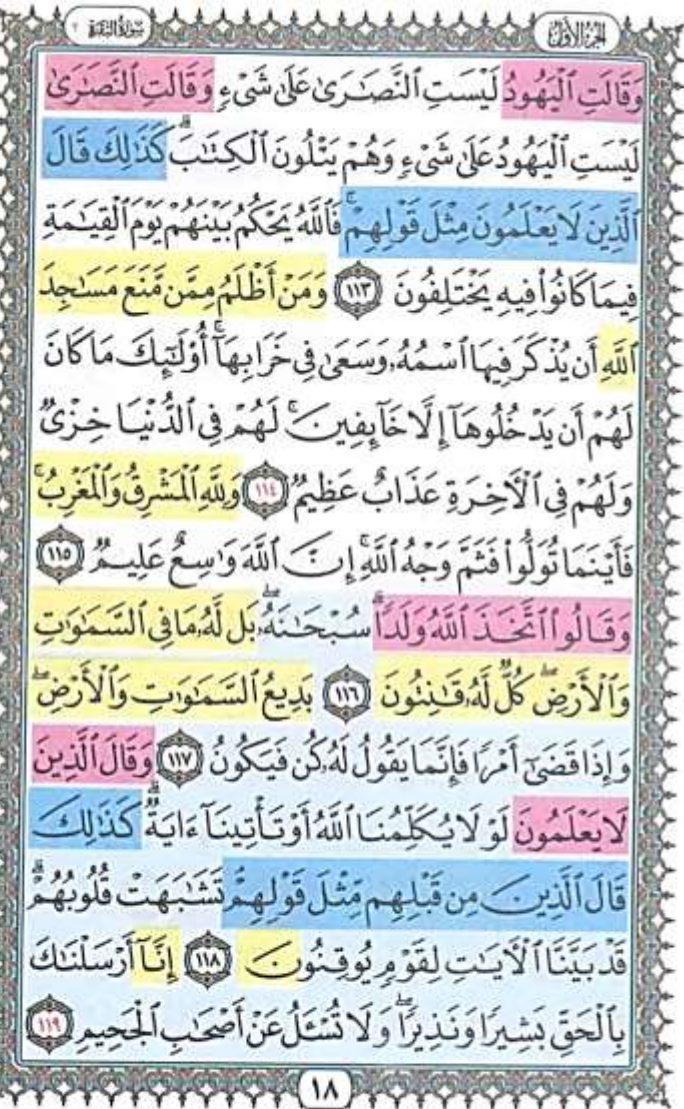 الجزء الأول
سورة البقرة
وَقَالَتِ ٱلْيَهُودُ لَيْسَتِ ٱلنَّصَٰرَىٰ عَلَىٰ شَىْءٍ وَقَالَتِ ٱلنَّصَٰرَىٰ
لَيْسَتِ ٱلْيَهُودُ عَلَىٰ شَىْءٍ وَهُمْ يَتْلُونَ ٱلْكِتَٰبَۗ كَذَٰلِكَ قَالَ
ٱلَّذِينَ لَا يَعْلَمُونَ مِثْلَ قَوْلِهِمْۚ فَٱللَّهُ يَحْكُمُ بَيْنَهُمْ يَوْمَ ٱلْقِيَٰمَةِ
فِيمَا كَانُوا۟ فِيهِ يَخْتَلِفُونَ ١١٣ وَمَنْ أَظْلَمُ مِمَّن مَّنَعَ مَسَٰجِدَ
ٱللَّهِ أَن يُذْكَرَ فِيهَا ٱسْمُهُۥ وَسَعَىٰ فِى خَرَابِهَآۚ أُو۟لَٰٓئِكَ مَا كَانَ
لَهُمْ أَن يَدْخُلُوهَآ إِلَّا خَآئِفِينَۚ لَهُمْ فِى ٱلدُّنْيَا خِزْىٌ
وَلَهُمْ فِى ٱلْءَاخِرَةِ عَذَابٌ عَظِيمٌ ١١٤ وَلِلَّهِ ٱلْمَشْرِقُ وَٱلْمَغْرِبُۚ
فَأَيْنَمَا تُوَلُّوا۟ فَثَمَّ وَجْهُ ٱللَّهِۚ إِنَّ ٱللَّهَ وَٰسِعٌ عَلِيمٌ ١١٥
وَقَالُوا۟ ٱتَّخَذَ ٱللَّهُ وَلَدًاۗ سُبْحَٰنَهُۥۖ بَل لَّهُۥ مَا فِى ٱلسَّمَٰوَٰتِ
وَٱلْأَرْضِۖ كُلٌّ لَّهُۥ قَٰنِتُونَ ١١٦ بَدِيعُ ٱلسَّمَٰوَٰتِ وَٱلْأَرْضِۖ
وَإِذَا قَضَىٰٓ أَمْرًا فَإِنَّمَا يَقُولُ لَهُۥ كُن فَيَكُونُ ١١٧ وَقَالَ ٱلَّذِينَ
لَا يَعْلَمُونَ لَوْلَا يُكَلِّمُنَا ٱللَّهُ أَوْ تَأْتِينَآ ءَايَةٌۗ كَذَٰلِكَ
قَالَ ٱلَّذِينَ مِن قَبْلِهِم مِّثْلَ قَوْلِهِمْۘ تَشَٰبَهَتْ قُلُوبُهُمْۗ
قَدْ بَيَّنَّا ٱلْءَايَٰتِ لِقَوْمٍ يُوقِنُونَ ١١٨ إِنَّآ أَرْسَلْنَٰكَ
بِٱلْحَقِّ بَشِيرًا وَنَذِيرًاۖ وَلَا تُسْـَٔلُ عَنْ أَصْحَٰبِ ٱلْجَحِيمِ ١١٩
١٨